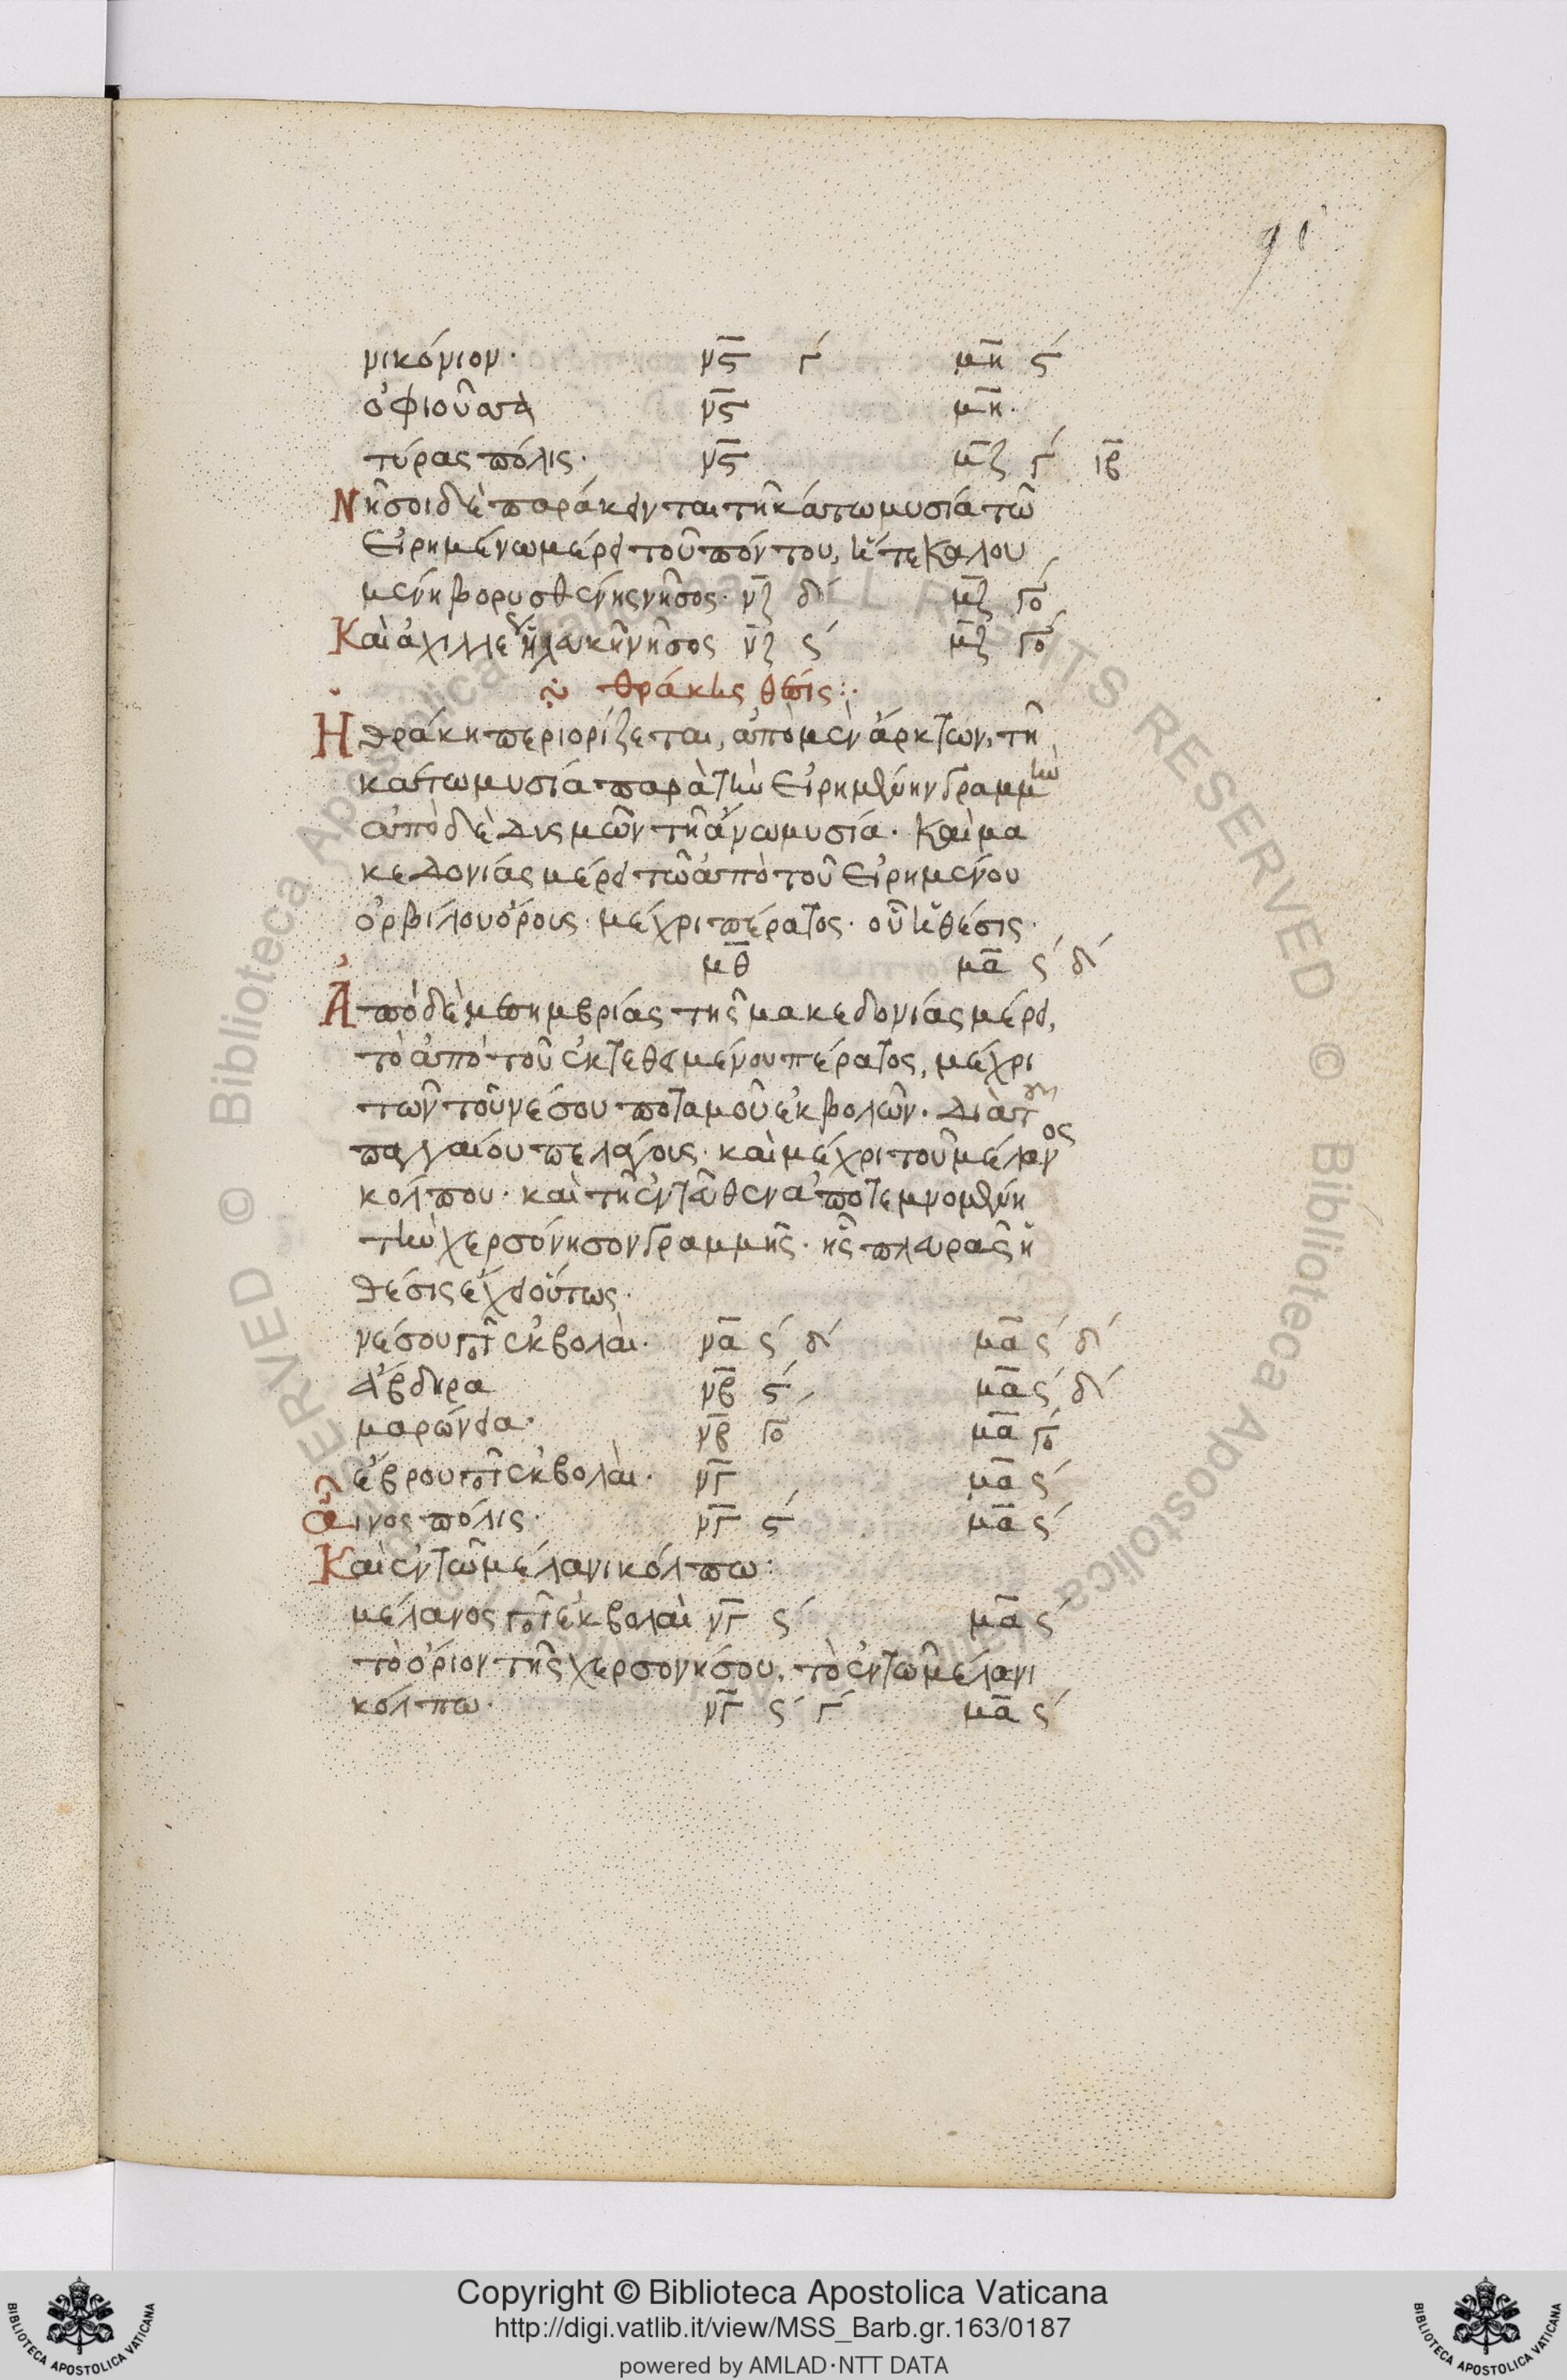 91
νικόνιον· νς γ΄ μη ς΄
ὀφιοῦσα νς μη·
τύρας πόλις· νς μζ γ΄ ιβ
Νῆσοι δὲ παράκεινται τῆ κάτω μυσία τῶ
εἰρημένω μέρει τοῦ πόντου, ἥ τε καλου
μένη βορυσθένης νῆσος· νζ δ΄ μζ γο΄
Καὶ ἀχιλλέ ἢ λευκὴ νῆσος νζ ς΄ μζ γο΄
θράκης θέσις:·
Η θράκη περιορίζεται, ἀπὸ μὲν ἄρκτων, τῆ
κάτω μυσία παρὰ τὴν εἰρημένην γραμμὴν
ἀπὸ δὲ δυσμῶν τῆ ἄνω μυσία· καὶ μα
κεδονίας μέρει τῶ ἀπὸ τοῦ εἰρημένου
ὀρβίλου ὄρους· μέχρι πέρατος· οὗ ἡ θέσις·
μθ μα ς΄ δ΄
Ἀπὸ δὲ μεσημβρίας τῆς μακεδονίας μέρει,
τὸ ἀπὸ τοῦ ἐκτεθειμένου πέρατος, μέχρι
τῶν τοῦ νέσου ποταμοῦ ἐκβολῶν· διὰ τ
παλγαίου πελάγους· καὶ μέχρι τοῦ μέλανος
κόλπου· καὶ τῆ ἐντεῦθεν ἀποτεμνομένη
τὴν χερσόνησον γραμμῆς· ἧς πλευρᾶς ἡ
θέσις ἔχει οὕτως·
νέσου ποτ ἐκβολαὶ· να ς΄ δ΄ μα ς΄ δ΄
ἄβδηρα νβ ς΄ μα ς΄ δ΄
μαρώνεια· νβ γο μα γο΄
ἕβρου ποτ ἐκβολαὶ· νγ μα ς΄
αἶνος πόλις· νγ ς΄ μα ς΄
Καὶ ἐν τῶ μέλανι κόλπω:
μέλανος ποτ ἐκβολαὶ νγ ς΄ μα ς΄
τὸ ὅριον τῆς χερσονήσου, τὸ ἐν τῶ μέλανι
κόλπω· νγ ς΄ γ΄ μα ς΄
© Biblioteca Apostolica Vaticana ALL RIGHTS RESERVED © Biblioteca Apostolica Vaticana ALL RIGHTS RESERVED
Copyright © Biblioteca Apostolica Vaticana
http://digi.vatlib.it/view/MSS_Barb.gr.163/0187
powered by AMLAD·NTT DATA
BIBLIOTECA APOSTOLICA VATICANA
BIBLIOTECA APOSTOLICA VATICANA